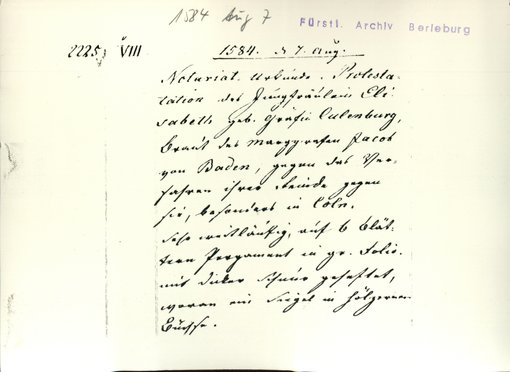 1584 Aug 7
Fürstl. Archiv Berleburg
2225, VIII
1584. d 7. Aug.
Notariat. Urkunde. Protesta-
tation des Jungfräulein Eli-
sabeth geb. Gräfin Culenburg,
Braut des Marggrafen Jacob
von Baden, gegen das Ver-
fahren ihrer Feinde gegen
sie, besonders in Cöln.
Sehr weitläufig, auf 6 Blät-
tern Pergament in gr. Folio.
mit dicker Schnur geheftet,
woran ein Siegel in hölzernen
Büchse.